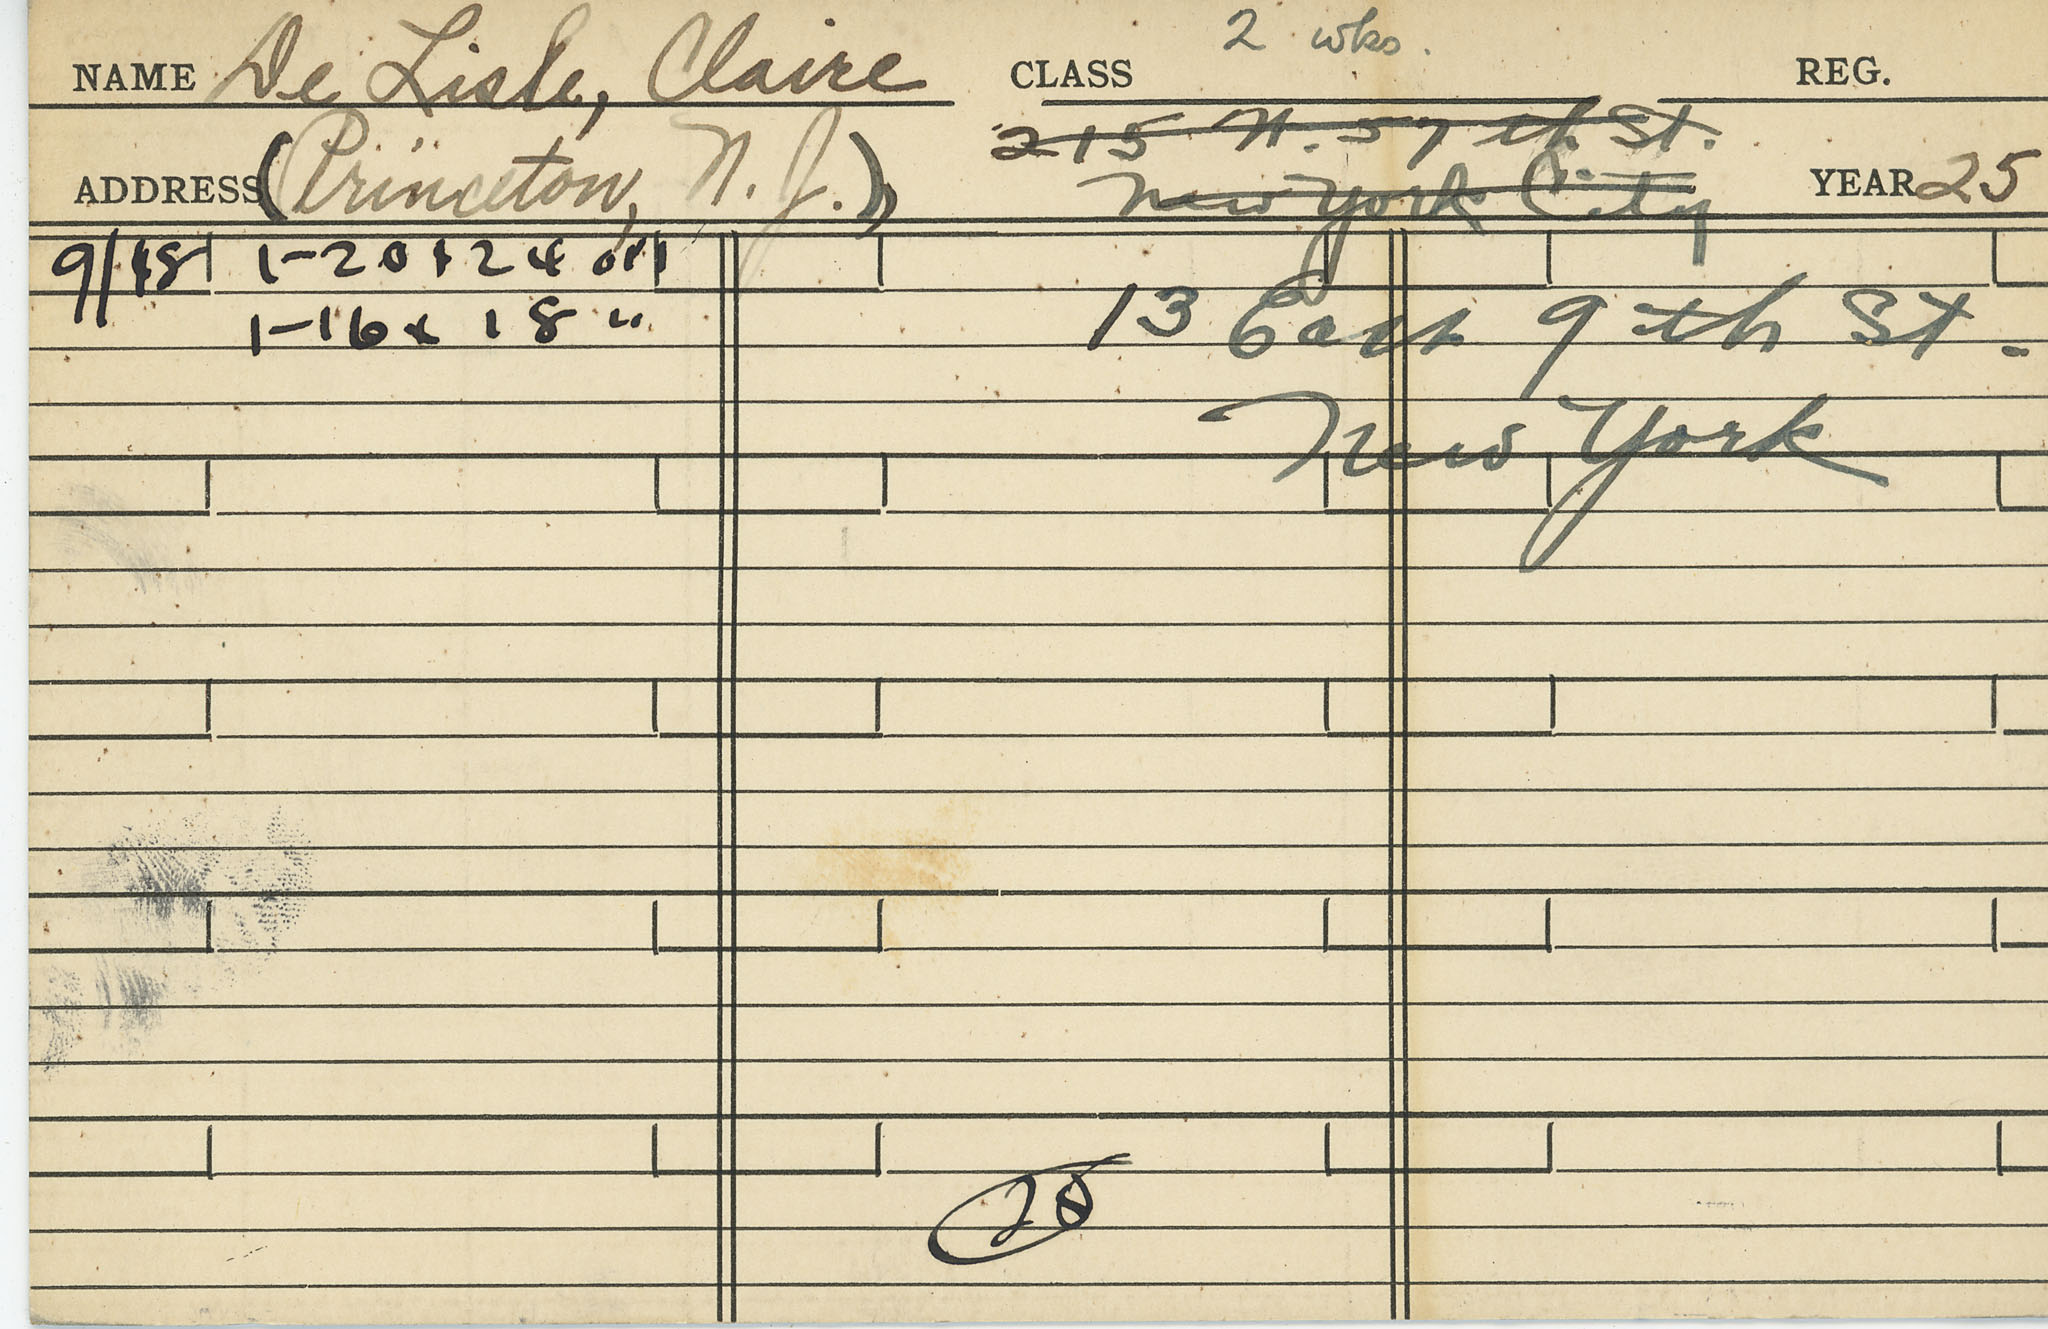 2 wks.
NAME De Lisle, Claire CLASS REG.
215 W. 57th St.
ADDRESS (Princeton, N. J.), New York City YEAR 25
9/18 1-20 x 24 oil
1-16 x 18 "
13 East 9th St.
New York